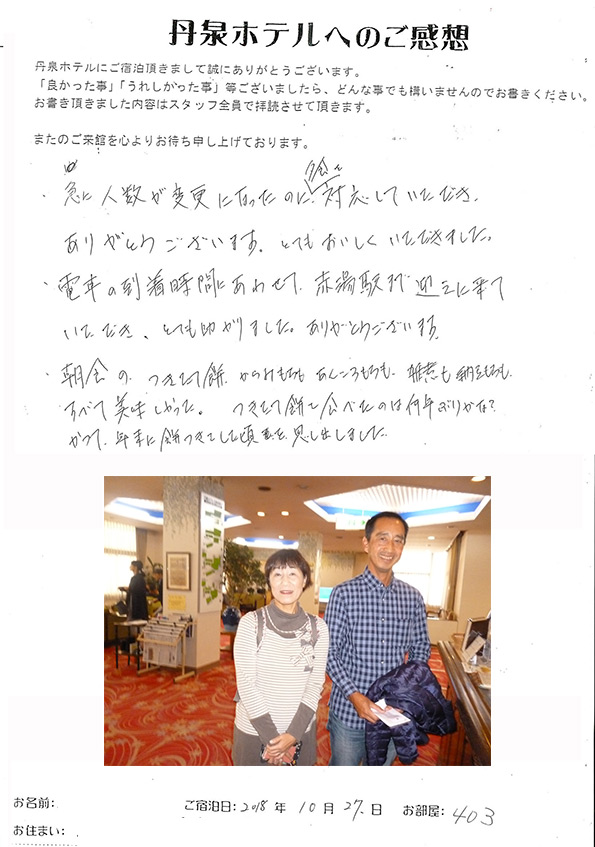 丹泉ホテルへのご感想
丹泉ホテルにご宿泊頂きまして誠にありがとうございます。
「良かった事」「うれしかった事」等ございましたら、どんな事でも構いませんのでお書きください。
お書き頂きました内容はスタッフ全員で拝読させて頂きます。
またのご来館を心よりお待ち申し上げております。
・急に人数が変更になったのに夕食を対応していただき、
ありがとうございます。とてもおいしくいただきました。
・電車の到着時間にあわせて、赤湯駅まで迎えに来て
いただき、とても助かりました。ありがとうございます。
・朝食の、つきたて餅、からみもちも あんころもちも、雑煮も納豆もちも、
すべて美味しかった。 つきたて餅を食べたのは何年ぶりかな?
かつて、年末に餅つきをした頃を思い出しました。
お名前:
ご宿泊日:2018年10月27日 お部屋:403
お住まい: